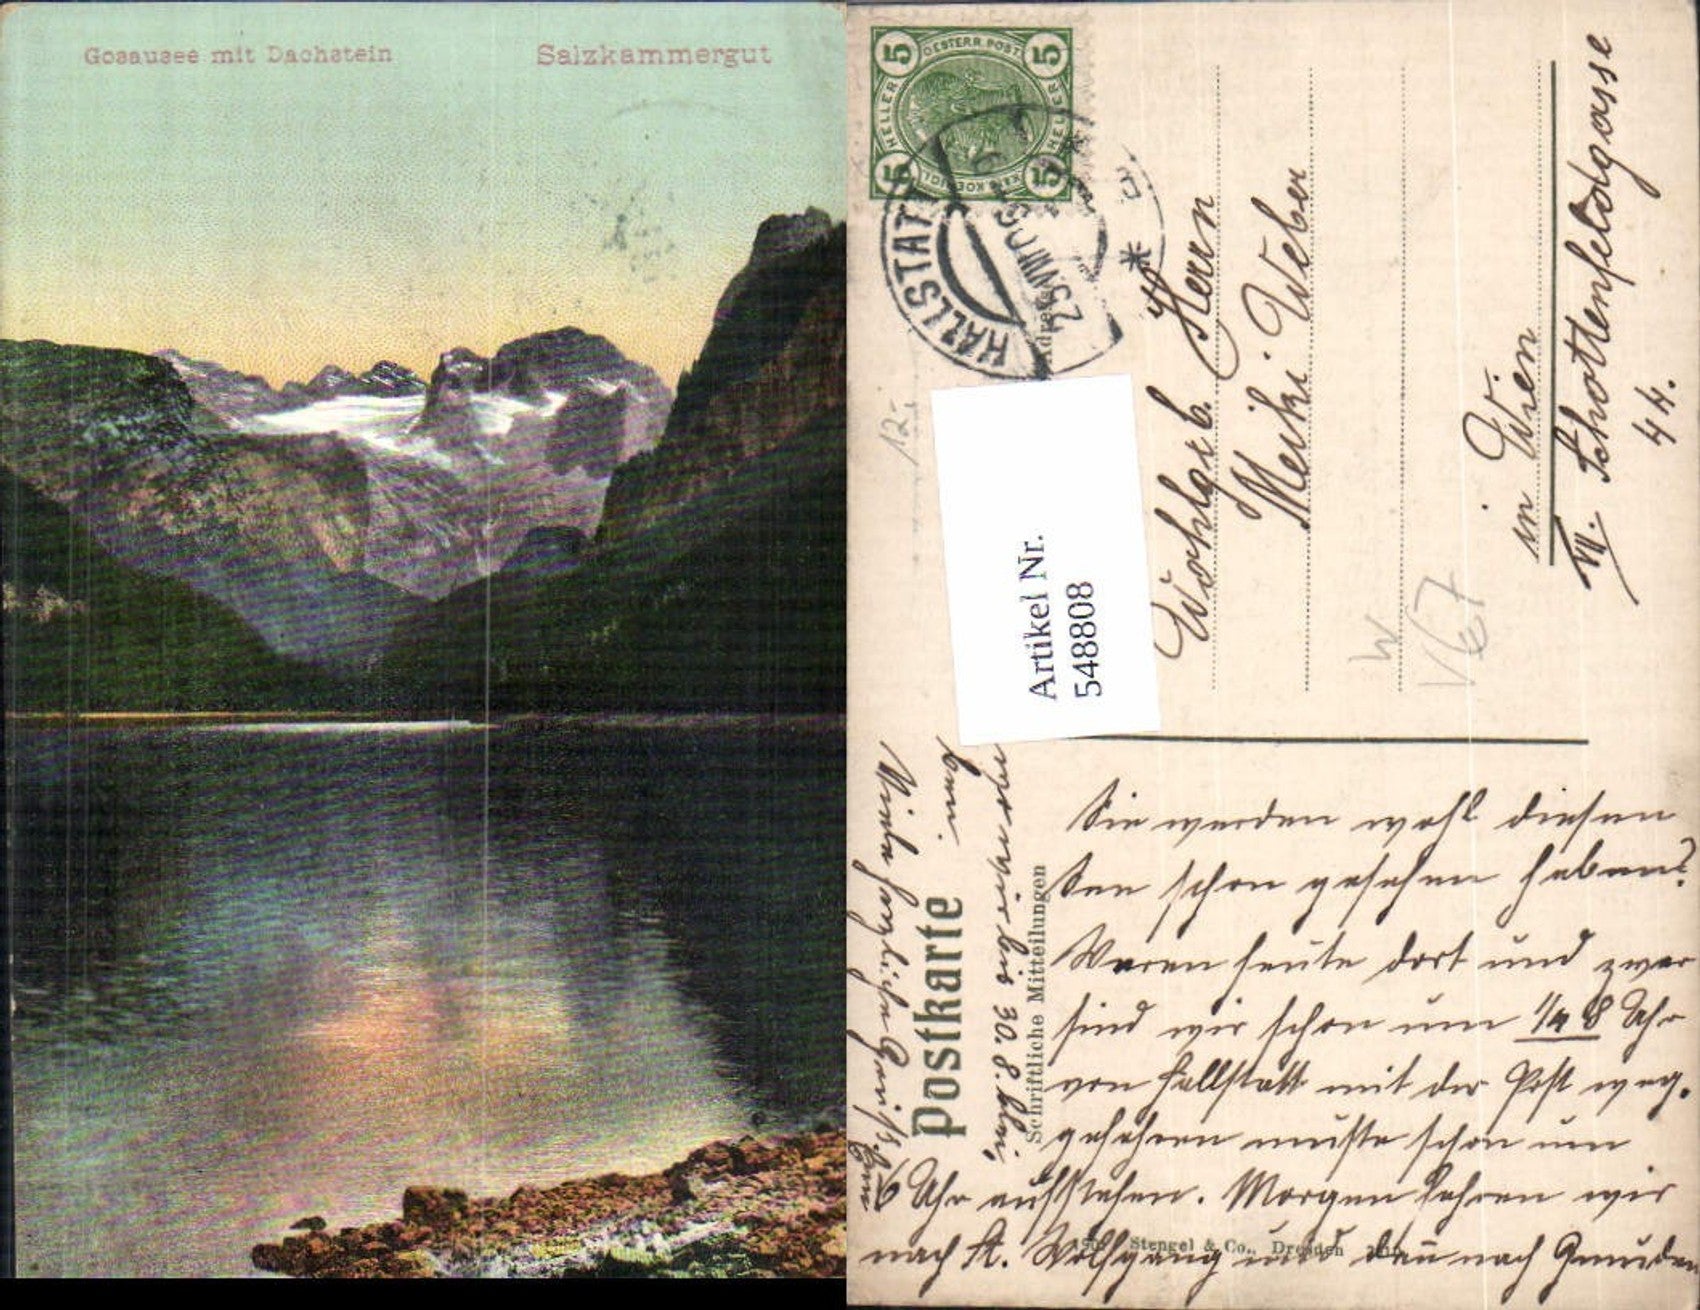 Gosausee mit Dachstein
Salzkammergut
5 OESTERR. POST 5
HELLER HELLER
5 5
HALLSTATT
25 VIII 09
Artikel Nr.
548808
12.-
Wohlgeb. Herrn
Weber
in Wien
VII. Schottenfeldgasse
44.
W
V67
Postkarte
Schriftliche Mitteilungen
Sie werden wohl diesen
See schon gesehen haben?
Waren heute dort und zwar
sind wir schon um 1/4 8 Uhr
von Hallstatt mit der Post weg-
gefahren musste schon um
6 Uhr aufstehen. Morgen fahren wir
nach St. Wolfgang und dann nach Gmunden
wo wir bis 30. 8. bleiben.
Viele herzliche Grüsse
Stengel & Co., Dresden